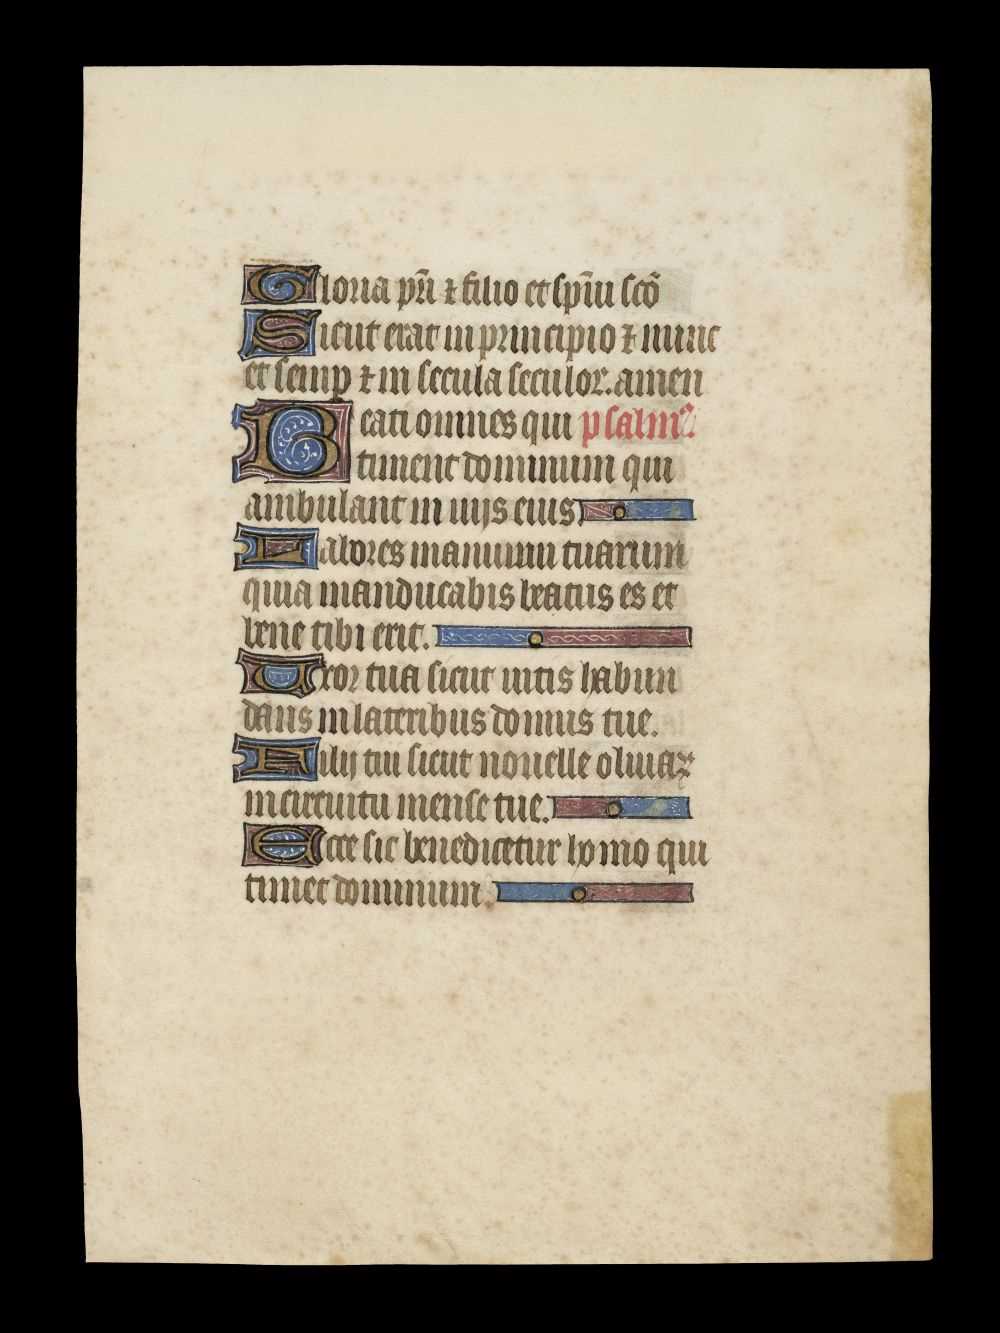 Gloria pr̄i ⁊ filio et sp̄iu sc̄o
Sicut erat in principio ⁊ nunc
et semp ⁊ in secula seculoꝝ. amen
Beati omnes qui psalm᷒.
timent dominum qui
ambulant in uijs eius
Labores manuum tuarum
quia manducabis beatus es et
bene tibi erit.
Uxor tua sicut uitis habun
dans in lateribus domus tue.
Filij tui sicut nouelle oliuaꝝ
in circuitu mense tue.
Ecce sic benedicetur homo qui
timet dominum.